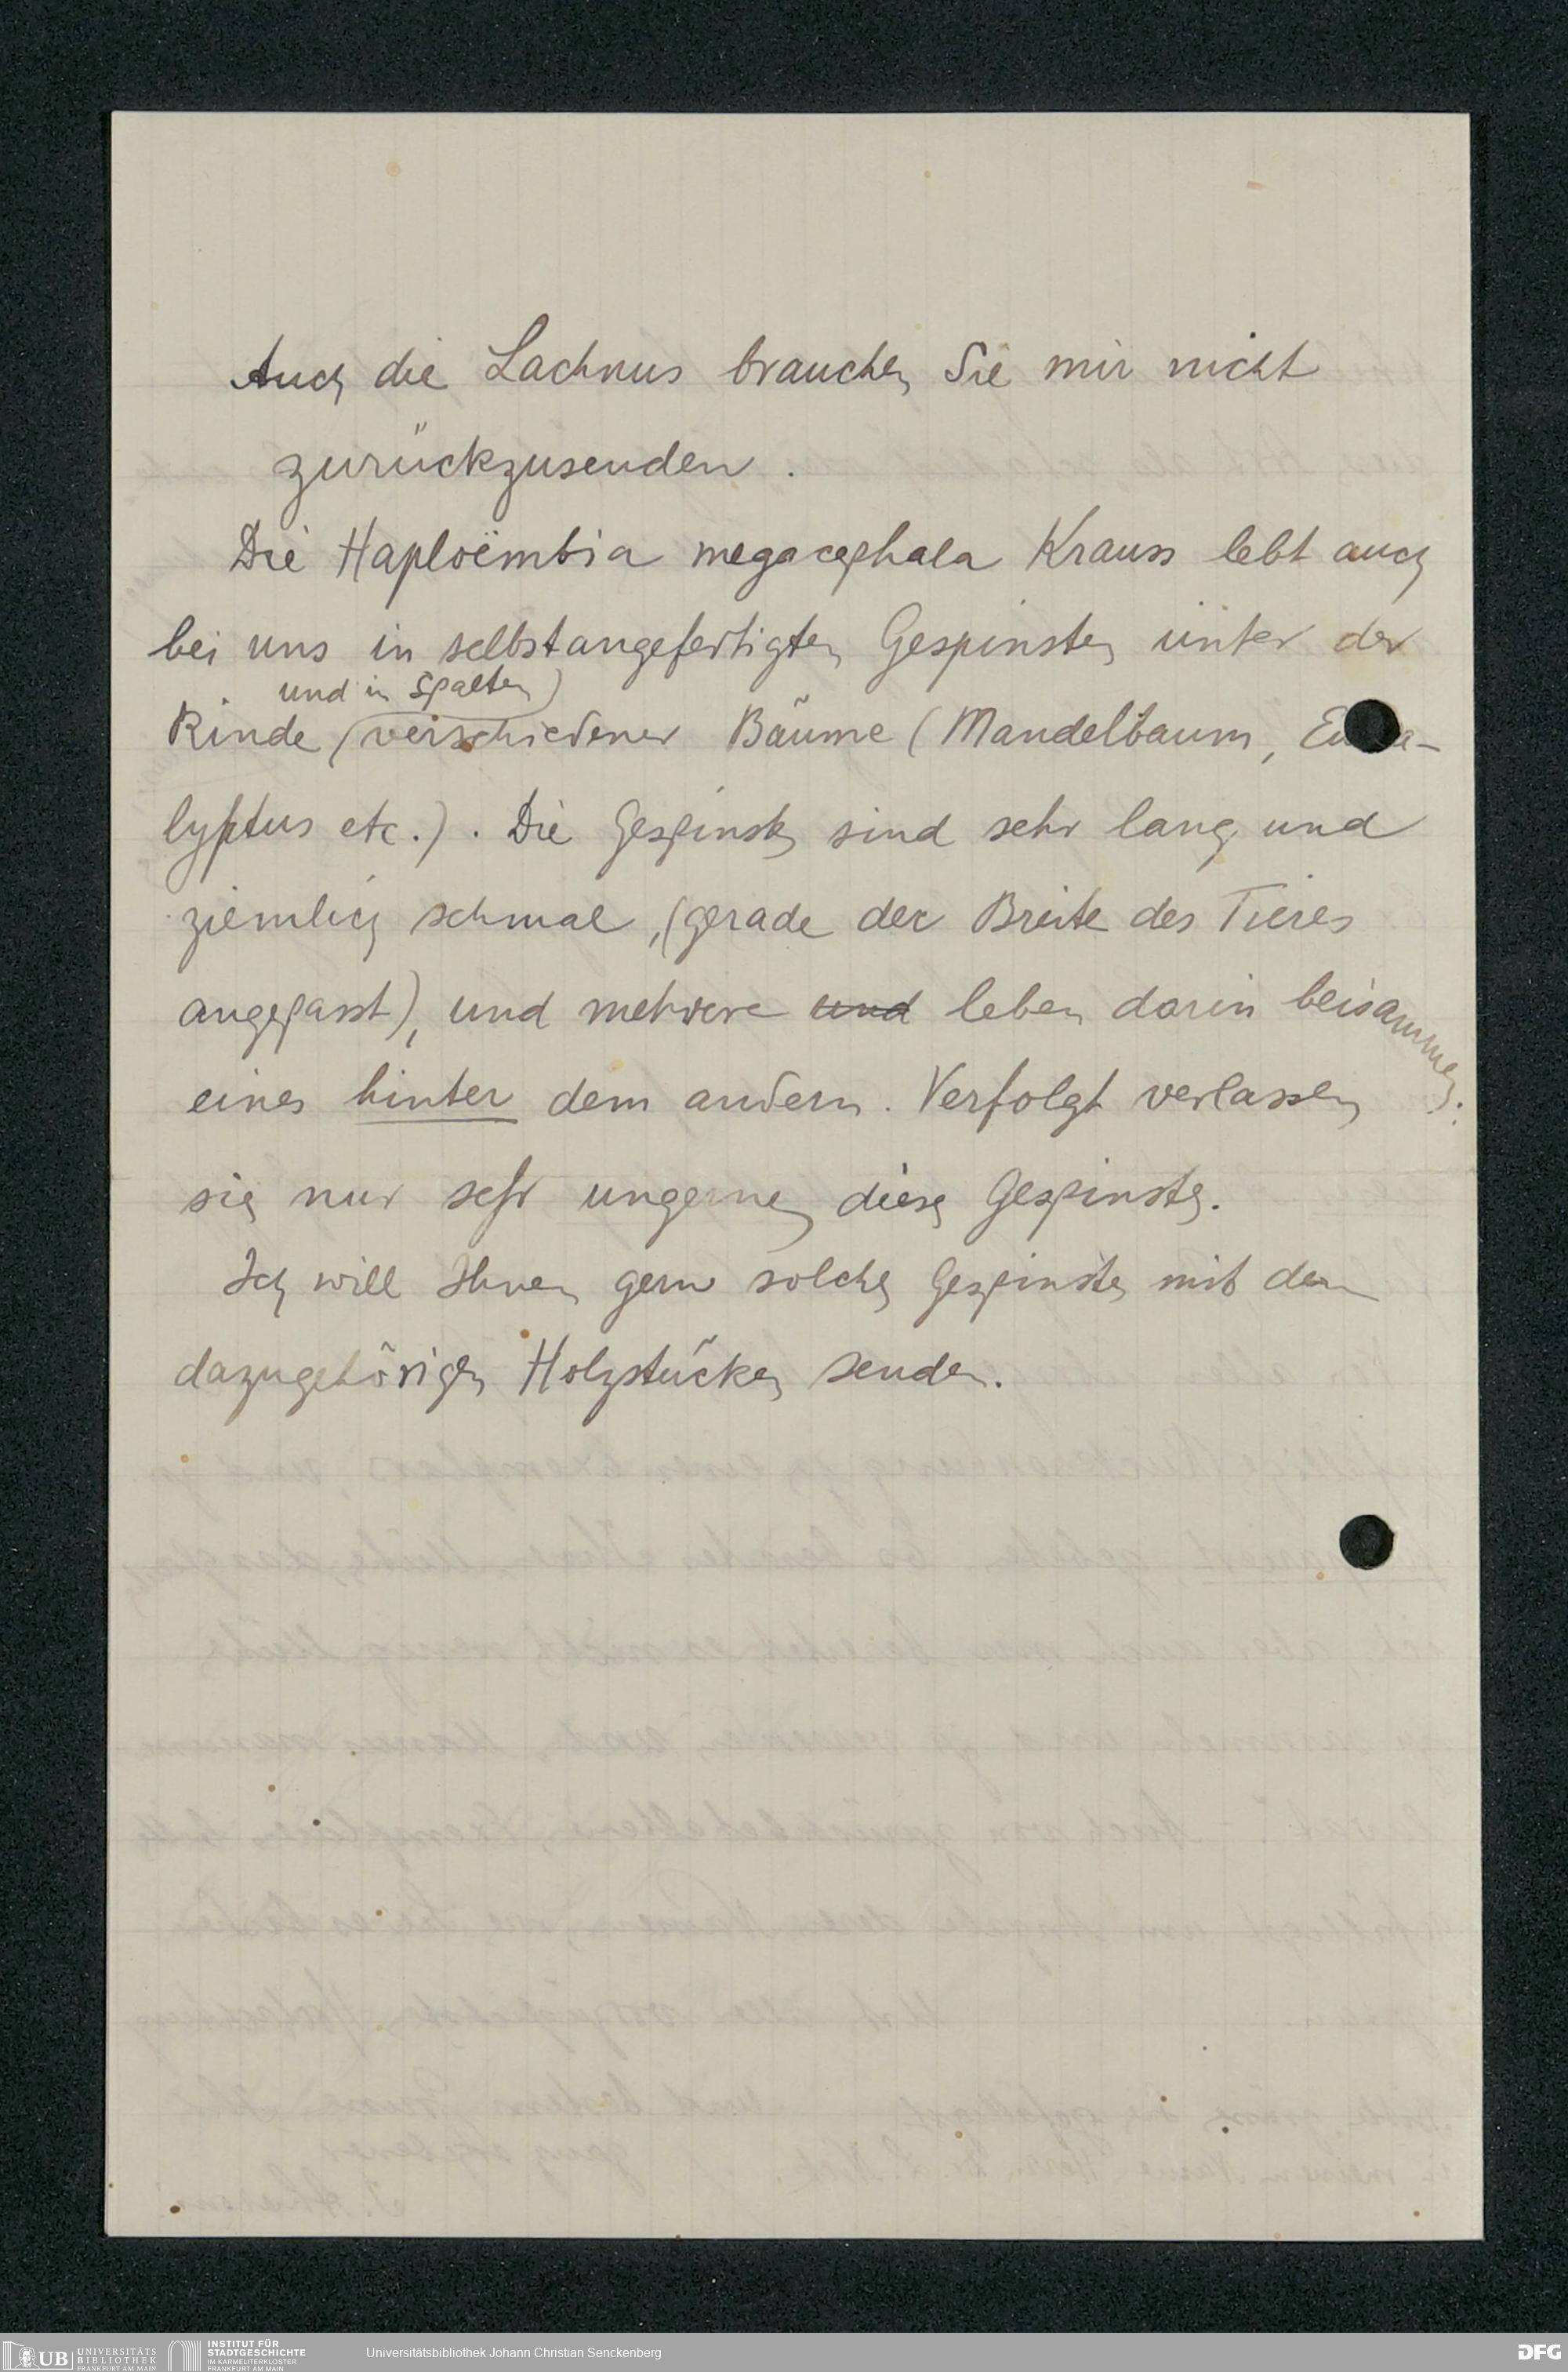 Auch die Lachnus brauchen Sie mir nicht
zurückzusenden.
Die Haploëmbia megacephala Krauss lebt auch
bei uns in selbstangefertigten Gespinsten unter der
und in Spalten)
Rinde (verschiedener Bäume (Mandelbaum, Euka-
lyptus etc.). Die Gespinste sind sehr lang und
ziemlich schmal, (gerade der Breite des Tieres
angepasst), und mehrere und leben darin beisammen,
eines hinter dem andern. Verfolgt verlassen
sie nur sehr ungerne diese Gespinste.
Ich will Ihnen gern solche Gespinste mit den
dazugehörigen Holzstücken senden.
UB UNIVERSITÄTS
BIBLIOTHEK
FRANKFURT AM MAIN
INSTITUT FÜR
STADTGESCHICHTE
IM KARMELITERKLOSTER
FRANKFURT AM MAIN
Universitätsbibliothek Johann Christian Senckenberg
DFG